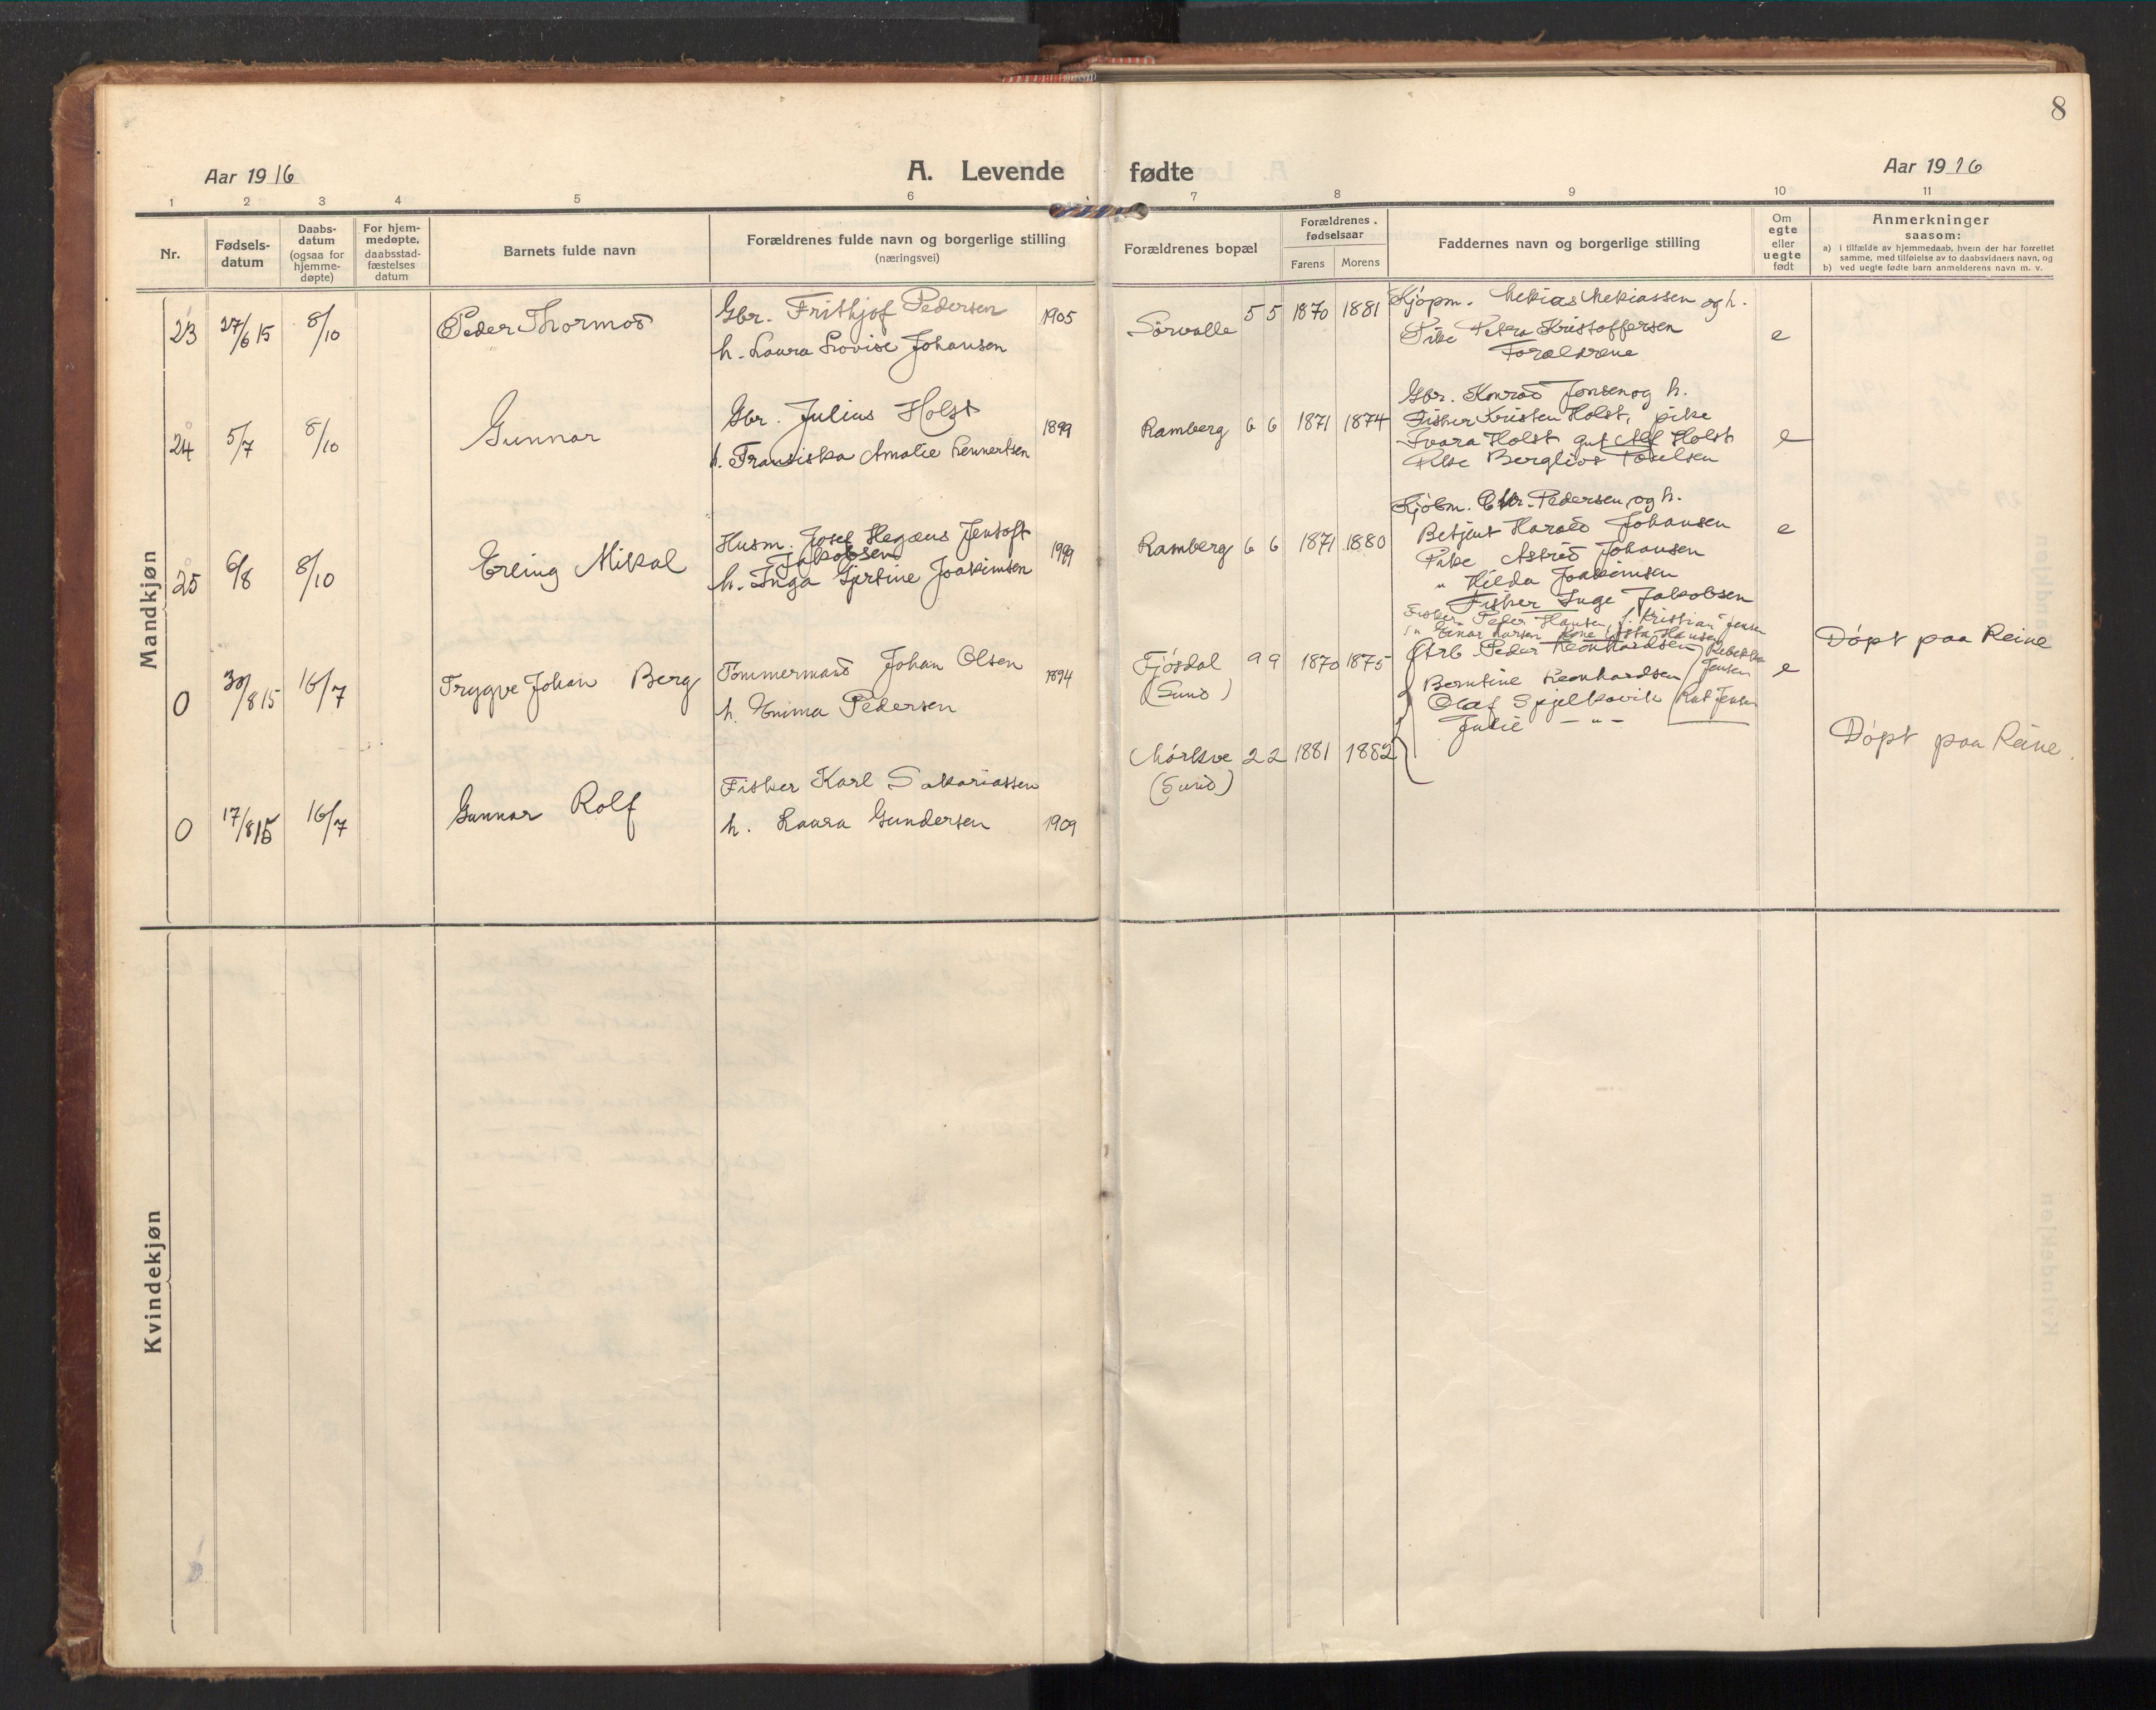 8
Aar 1916
A. Levende fødte
Aar 1916
1 2 3 4 5 6 7 8 9 10 11
Nr.
Fødsels-
datum
Daabs-
datum
(ogsaa for
hjemme-
døpte)
For hjem-
medøpte,
daabsstad-
fæstelses
datum
Barnets fulde navn
Forældrenes fulde navn og borgerlige stilling
(næringsvei)
Forældrenes bopæl
Forældrenes
fødselsaar
Farens Morens
Faddernes navn og borgerlige stilling
Om
egte
eller
uegte
født
Anmerkninger
saasom:
a) i tilfælde av hjemmedaab, hvem der har forrettet
samme, med tilføielse av to daabsvidners navn, og
b) ved uegte fødte barn anmelderens navn m. v.
Mandkjøn
23 27/6 15 8/10 Peder Thormod
Gbr. Frithjof Pedersen 1905
h. Laura Lovise Johansen
Sörvalle 5 5 1870 1881
Kjöpm. og h.
Pike Petra Kristoffersen
Forældrene
e
24 5/7 8/10 Gunnar
Gbr. Julius Holst 1899
h. Fransiska Amalie Lennertsen
Ramberg 6 6 1871 1874
Gbr. Konrad Jonsen og h.
Fisker Kristen Holst, pike
Holst gut Alf Holst
Pike Bergliot
e
25 6/8 8/10 Erling Mikal
Husm. Josef Jentoft
Jakobsen
h. Inga Gjertine Joakimsen
Ramberg 6 6 1871 1880
Kjöbm. Chr. Pedersen og h.
Betjent Harald Johansen
Pike Astrid Johansen
" Hilda Joakimsen
Fisker Inge Jakobsen
e
0 30/8 15 16/7 Trygve Johan Berg
Tømmermand Johan Olsen 1894
h. Emma Pedersen
Fjösdal 9 9 1870 1875
(Sund)
Fisker Peder Hansen, f. Kristian Jensen
" Einar Larsen Kone Hansen
Arb Peder Leonhardsen Rebekka
Jensen
Berntine Leonhardsen
Olaf Spjelkavik Rut Jensen
Julie — " —
e
Döpt paa Reine
0 17/8 15 16/7 Gunnar Rolf
Fisker Karl Sakariassen
h. Laura Gundersen 1909
Mörkve 2 2 1881 1882
(Sund)
Döpt paa Reine.
Kvindekjøn